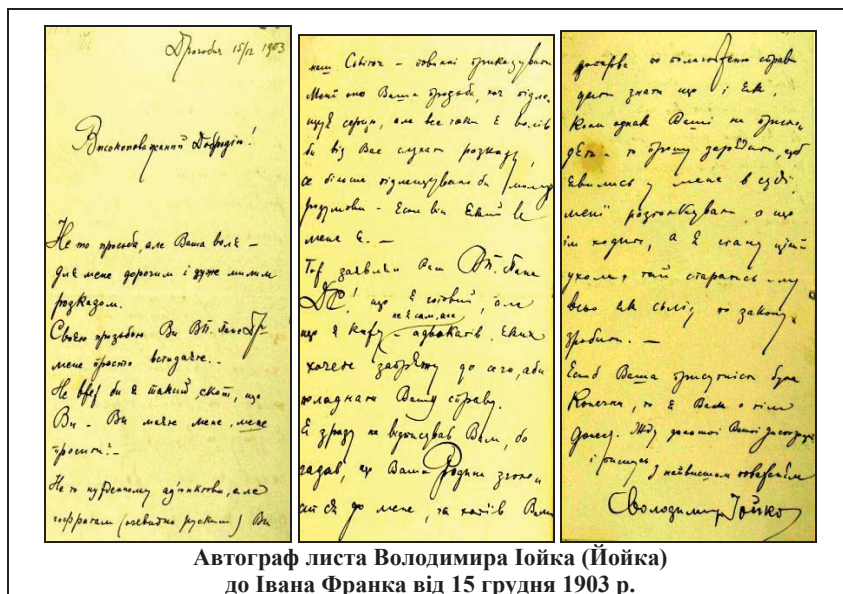 Дрогобич 15/12 1903
Високоповажаний Добродію!
Не то просьба, але Ваша воля –
для мене дорогим і дуже милим
розказом.
Своєю прозьбою Ви ВП. Пане Др
мене просто встидаєте. –
Не вже ж би я такий скот, що
Ви – Ви маєте мене, мене
просити? –
Не то нужденному адʼюнктови, але
гофратам (очевидно руским) Ви
наш Світоч – повинні приказувати
Мені ото Ваша прозьба, хоч підле-
щує серцю, але все таки я волів
би від Вас слухати розказу,
се більше підлещувало би
розумови – Если він який в
мене є. –
Тож заявляю Вам ВП. Пане
ДР! що я готовий, але
не я сам, але
що я кажу – адвокатів, яких
хочете запряжу до сего, аби
поладнати Вашу справу.
Я зразу не відписував Вам, бо
гадав, що Ваша Родина зголо
ситься до мене, та хотів Вам
доперва по полагодженю справи
дати знати що і як.
Коли однак Ваші не прихо
дять – то прошу зарядити, щоб
явились у мене в суді,
мені розтолкували о що
їм ходить, а я стану цілий
ухом, тай
всьо як слід по закону
зробити. –
Ваша присутність була
конечна, то я Вам о тім
донесу. Жду дальшої Вашої диспозиції
і пишусь з найвисшим поважанєм
Володимир Іойко
Автограф листа Володимира Іойка (Йойка)
до Івана Франка від 15 грудня 1903 р.